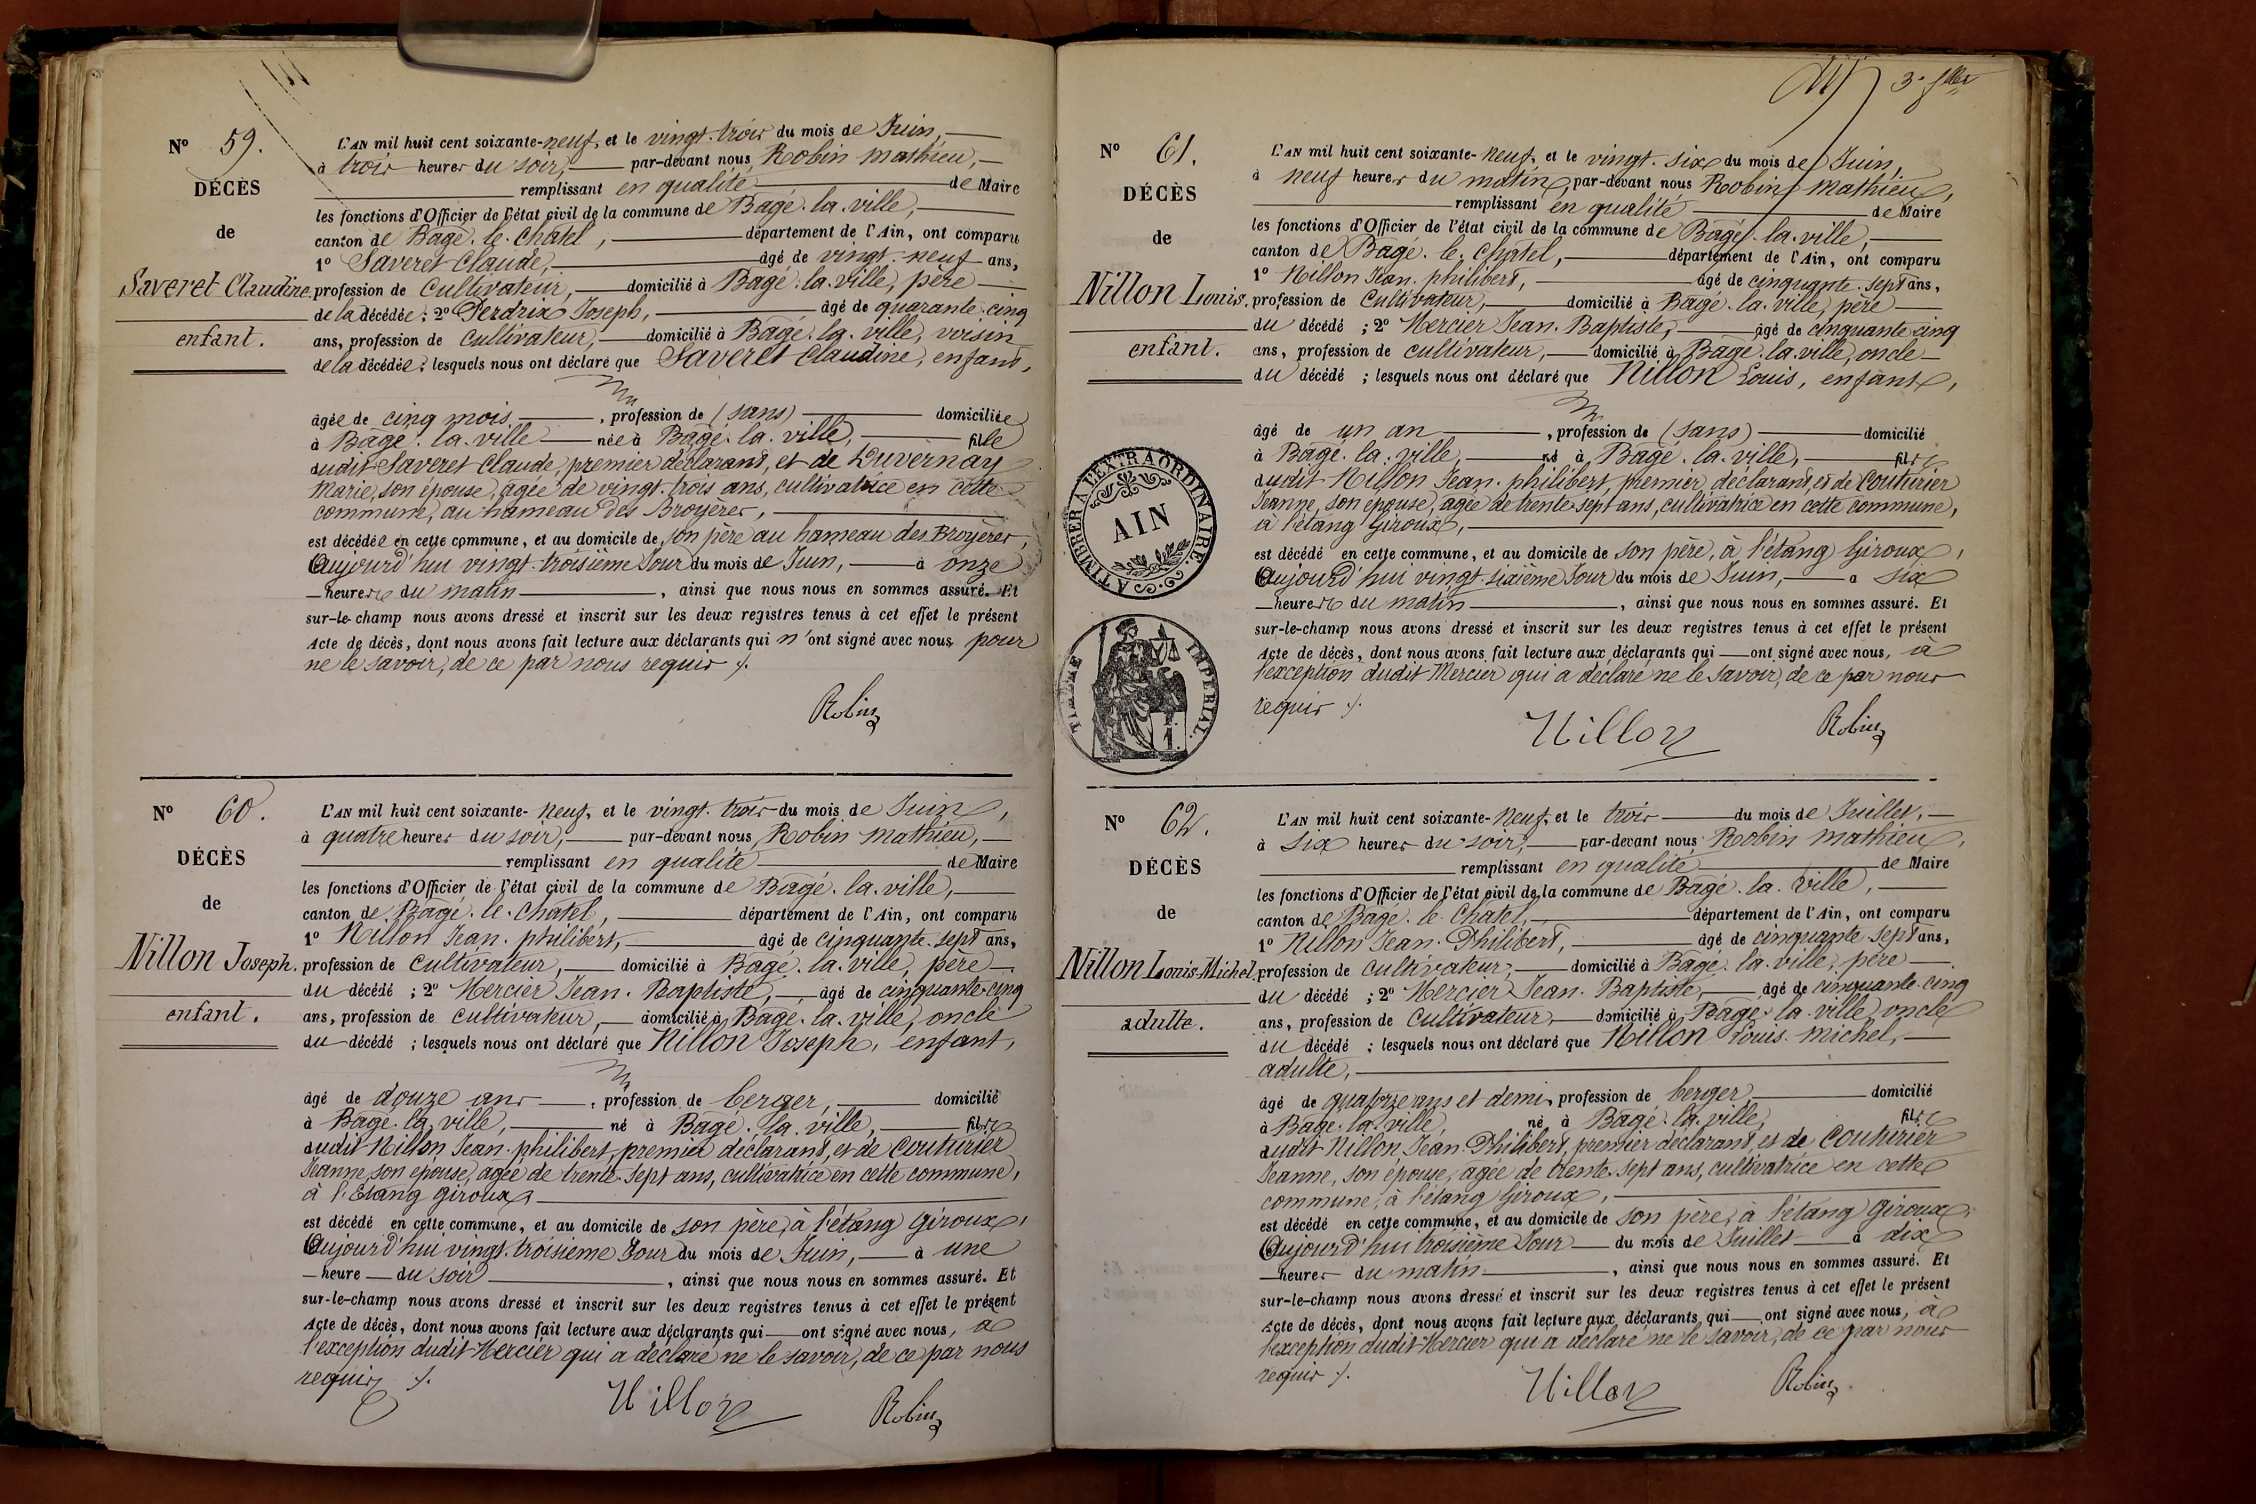 N° 59.
DÉCÈS
de
Saveret Claudine.
enfant.
L'AN mil huit cent soixante-neuf, et le vingt-trois du mois de Juin,
à trois heures du soir, par-devant nous Robin Mathieu,
remplissant en qualité de Maire
les fonctions d'Officier de l'état civil de la commune de Bagé-la-ville,
canton de Bagé-le-Chatel, département de l'Ain, ont comparu
1° Saveret Claude, âgé de vingt-neuf ans,
profession de Cultivateur, domicilié à Bagé-la-ville, père
de la décédée; 2° Perdrix Joseph, âgé de quarante-cinq
ans, profession de cultivateur, domicilié à Bagé-la-ville, voisin
de la décédée; lesquels nous ont déclaré que Saveret Claudine, enfant,
âgée de cinq mois, profession de (sans) domiciliée
à Bagé-la-ville née à Bagé-la-ville, fille
dudit Saveret Claude, premier déclarant, et de Duvernay
Marie, son épouse, agée de vingt-trois ans, cultivatrice en cette
commune, au hameau des Broyères,
est décédée en cette commune, et au domicile de son père au hameau des Broyères,
Aujourd'hui vingt-troisième Jour du mois de Juin, à onze
heures du matin, ainsi que nous nous en sommes assuré. Et
sur-le-champ nous avons dressé et inscrit sur les deux registres tenus à cet effet le présent
Acte de décès, dont nous avons fait lecture aux déclarants qui n'ont signé avec nous pour
ne le savoir, de ce par nous requis ./.
Robin
N° 60.
DÉCÈS
de
Nillon Joseph.
enfant.
L'AN mil huit cent soixante-neuf, et le vingt-trois du mois de Juin,
à quatre heures du soir, par-devant nous Robin Mathieu,
remplissant en qualité de Maire
les fonctions d'Officier de l'état civil de la commune de Bagé-la-ville,
canton de Bagé-le-Chatel, département de l'Ain, ont comparu
1° Nillon Jean-philibert, âgé de cinquante-sept ans,
profession de Cultivateur, domicilié à Bagé-la-ville, père
du décédé; 2° Mercier Jean-Baptiste, âgé de cinquante-cinq
ans, profession de cultivateur, domicilié à Bagé-la-ville, oncle
du décédé; lesquels nous ont déclaré que Nillon Joseph, enfant,
âgé de douze ans, profession de berger, domicilié
à Bagé-la-ville, né à Bagé-la-ville, fils
dudit Nillon Jean-philibert, premier déclarant, et de Couturier
Jeanne, son épouse, agée de trente-sept ans, cultivatrice en cette commune,
à l'Etang Giroux,
est décédé en cette commune, et au domicile de son père, à l'étang Giroux,
Aujourd'hui vingt-troisième Jour du mois de Juin, à une
heure du soir, ainsi que nous nous en sommes assuré. Et
sur-le-champ nous avons dressé et inscrit sur les deux registres tenus à cet effet le présent
Acte de décès, dont nous avons fait lecture aux déclarants qui ont signé avec nous, à
l'exception dudit Mercier qui a déclaré ne le savoir, de ce par nous
requis ./.
Nillon Robin
3e
N° 61.
DÉCÈS
de
Nillon Louis.
enfant.
A TIMBRER À L'EXTRAORDINAIRE.
AIN
TIMBRE IMPERIAL.
L'AN mil huit cent soixante-neuf, et le vingt-six du mois de Juin,
à neuf heures du matin, par-devant nous Robin Mathieu,
remplissant en qualité de Maire
les fonctions d'Officier de l'état civil de la commune de Bagé-la-ville,
canton de Bagé-le-Chatel, département de l'Ain, ont comparu
1° Nillon Jean-philibert, âgé de cinquante-sept ans,
profession de Cultivateur, domicilié à Bagé-la-ville, père
du décédé; 2° Mercier Jean-Baptiste, âgé de cinquante-cinq
ans, profession de cultivateur, domicilié à Bagé-la-ville, oncle
du décédé; lesquels nous ont déclaré que Nillon Louis, enfant,
âgé de un an, profession de (sans) domicilié
à Bagé-la-ville, né à Bagé-la-ville, fils
dudit Nillon Jean-philibert, premier déclarant, et de Couturier
Jeanne, son épouse, agée de trente-sept ans, cultivatrice en cette commune,
à l'étang Giroux,
est décédé en cette commune, et au domicile de son père, à l'étang Giroux,
Aujourd'hui vingt-sixième Jour du mois de Juin, à six
heures du matin, ainsi que nous nous en sommes assuré. Et
sur-le-champ nous avons dressé et inscrit sur les deux registres tenus à cet effet le présent
Acte de décès, dont nous avons fait lecture aux déclarants qui ont signé avec nous, à
l'exception dudit Mercier qui a déclaré ne le savoir, de ce par nous
requis ./.
Nillon Robin
N° 62.
DÉCÈS
de
Nillon Louis-Michel.
adulte.
L'AN mil huit cent soixante-neuf, et le trois du mois de Juillet,
à six heures du soir, par-devant nous Robin Mathieu,
remplissant en qualité de Maire
les fonctions d'Officier de l'état civil de la commune de Bagé-la-ville,
canton de Bagé-le-Chatel, département de l'Ain, ont comparu
1° Nillon Jean-Philibert, âgé de cinquante-sept ans,
profession de cultivateur, domicilié à Bagé-la-ville, père
du décédé; 2° Mercier Jean-Baptiste, âgé de cinquante-cinq
ans, profession de Cultivateur, domicilié à Bagé-la-ville, oncle
du décédé; lesquels nous ont déclaré que Nillon Louis-Michel,
adulte,
âgé de quatorze ans et demi, profession de berger, domicilié
à Bagé-la-ville, né à Bagé-la-ville, fils
dudit Nillon Jean-Philibert, premier déclarant, et de Couturier
Jeanne, son épouse, agée de trente-sept ans, cultivatrice en cette
commune, à l'étang Giroux,
est décédé en cette commune, et au domicile de son père, à l'étang Giroux,
Aujourd'hui troisième Jour du mois de Juillet à dix
heures du matin, ainsi que nous nous en sommes assuré. Et
sur-le-champ nous avons dressé et inscrit sur les deux registres tenus à cet effet le présent
Acte de décès, dont nous avons fait lecture aux déclarants qui ont signé avec nous, à
l'exception dudit Mercier qui a déclaré ne le savoir, de ce par nous
requis ./.
Nillon Robin